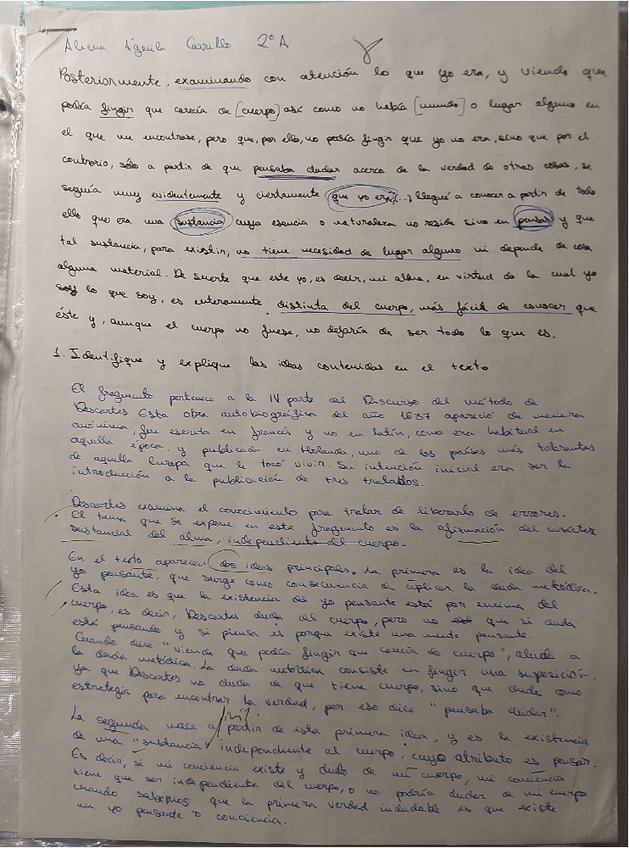 Águila Carrillo 2º A
Posteriormente, examinando con atención lo que yo era, y viendo que
podía fingir que carecía de [cuerpo] así como no había [mundo] o lugar alguno en
el que me encontrase, pero que, por ello, no podía fingir que yo no era, sino que por el
contrario, sólo a partir de que pensaba dudar acerca de la verdad de otras cosas, se
seguía muy evidentemente y ciertamente que yo era, (...) llegué a conocer a partir de todo
ello que era una sustancia cuya esencia o naturaleza no reside sino en pensar y que
tal sustancia, para existir, no tiene necesidad de lugar alguno ni depende de cosa
alguna material. De suerte que este yo, es decir, mi alma, en virtud de la cual yo
soy lo que soy, es enteramente distinta del cuerpo, más fácil de conocer que
éste y, aunque el cuerpo no fuese, no dejaría de ser todo lo que es.
1. Identifique y explique las ideas contenidas en el texto
El fragmento pertenece a la IV parte del Discurso del método de
Descartes. Esta obra autobiográfica del año 1637 apareció de manera
anónima, fue escrita en francés y no en latín, como era habitual en
aquella época y publicación en Holanda, uno de los países más tolerantes
de aquella Europa que le tocó vivir. Su intención inicial era ser la
introducción a la publicación de tres tratados.
Descartes examina el conocimiento para tratar de liberarlo de errores.
El tema que se expone en este fragmento es la afirmación del carácter
sustancial del alma, independiente del cuerpo.
En el texto aparecen dos ideas principales. La primera es la idea del
yo pensante, que surge como consecuencia de aplicar la duda metódica.
Esta idea es que la existencia del yo pensante está por encima del
cuerpo, es decir, Descartes duda del cuerpo, pero no que si duda
está pensando y si piensa es porque existe una mente pensante.
Cuando dice "viendo que podía fingir que carecía de cuerpo", alude a
la duda metódica. La duda metódica consiste en fingir una suposición.
ya que Descartes no duda de que tiene cuerpo, sino que duda como
estrategia para encontrar la verdad, por eso dice "pensaba dudar".
La segunda nace a partir de esta primera idea, y es la existencia
de una "sustancia" independiente al cuerpo, cuyo atributo es pensar.
Es decir, si mi conciencia existe y dudo de mi cuerpo, mi conciencia
tiene que ser independiente del cuerpo, o no podría dudar de mi cuerpo
cuando sabemos que la primera verdad indudable es que existe
un yo pensante o conciencia.